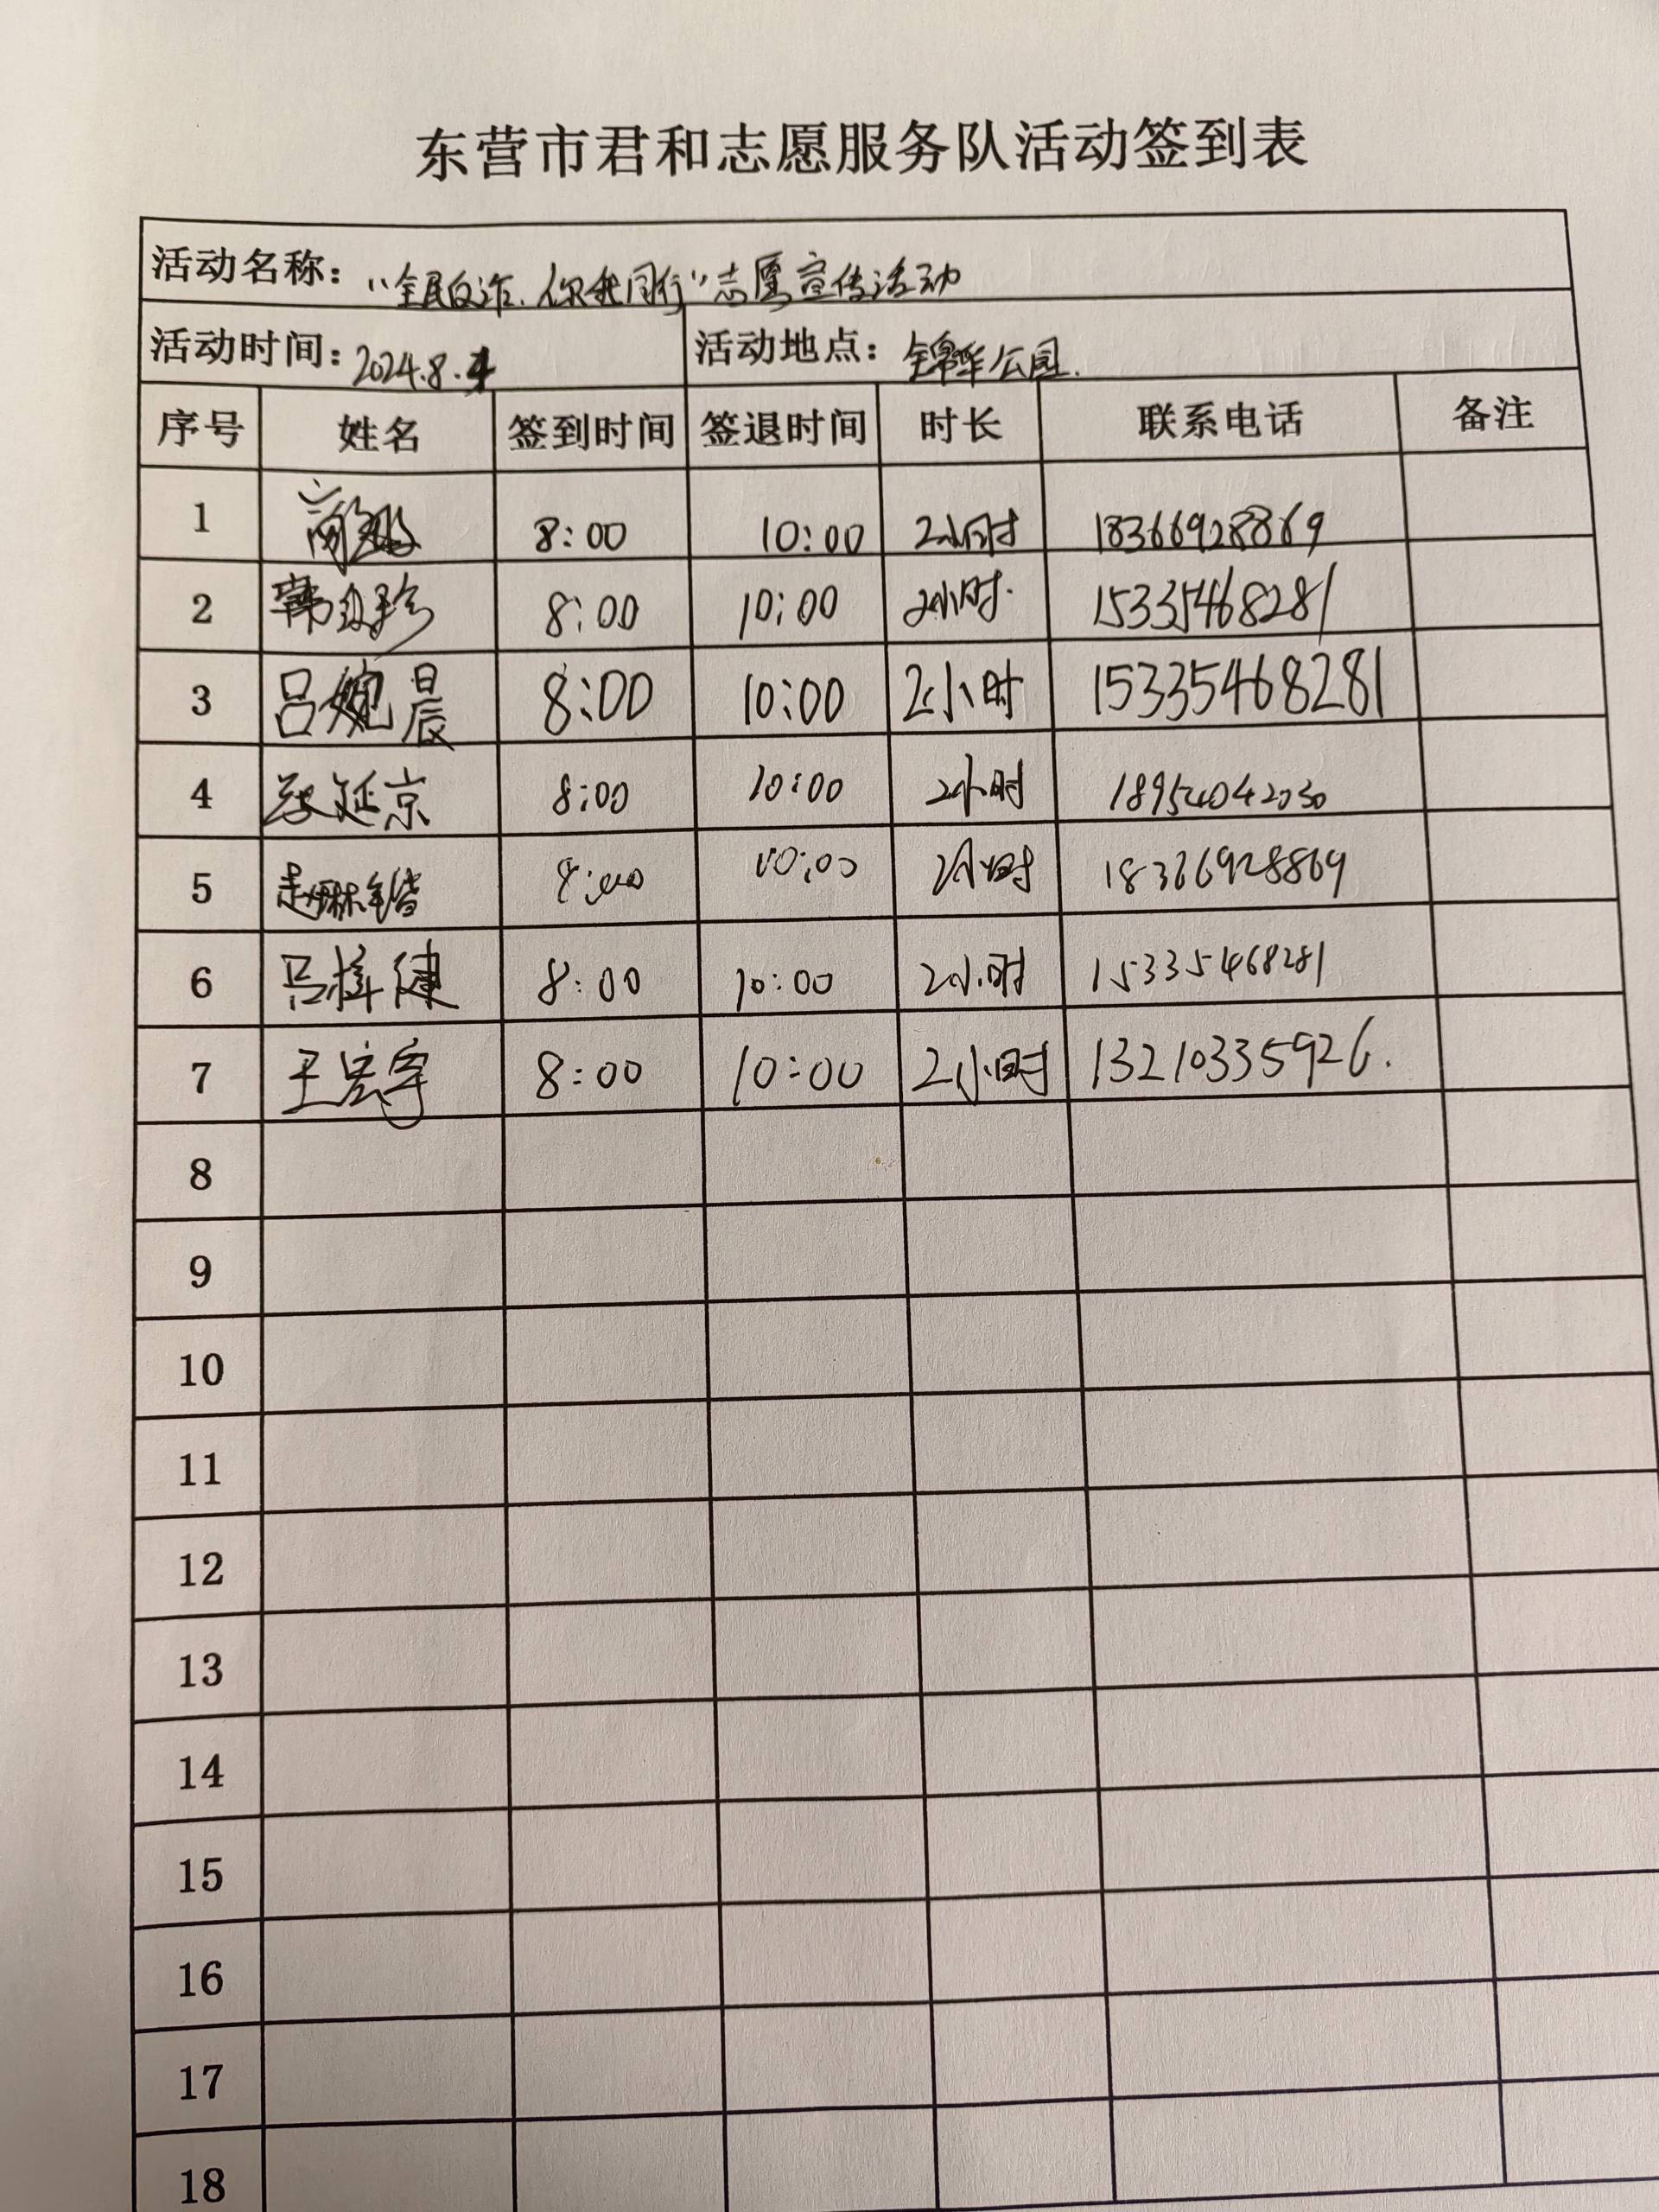 东营市君和志愿服务队活动签到表
活动名称：“全民反诈、你我同行”志愿宣传活动
活动时间：2024.8.4 活动地点：锦华公园.
序号 姓名 签到时间 签退时间 时长 联系电话 备注
1 8:00 10:00 2小时 18366928869
2 韩 珍 8:00 10:00 2小时. 15335468281
3 吕婉晨 8:00 10:00 2小时 15335468281
4 延京 8:00 10:00 2小时 18954042030
5 赵琳锴 8:00 10:00 2小时 18366928869
6 吕梓健 8:00 10:00 2小时 15335468281
7 王宏宇 8:00 10:00 2小时 13210335926.
8
9
10
11
12
13
14
15
16
17
18